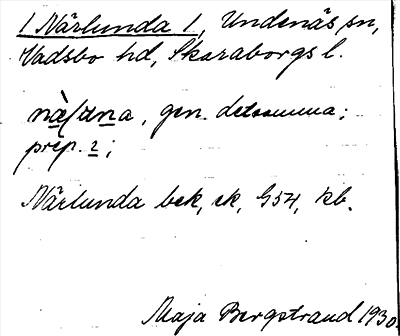 1 Närlunda 1, Undenäs sn,
Vadsbo hd, Skaraborgs l.
gen. detsamma;
prep. 2;
Närlunda bek, ek, G54, kb.
Maja Bergstrand 1930